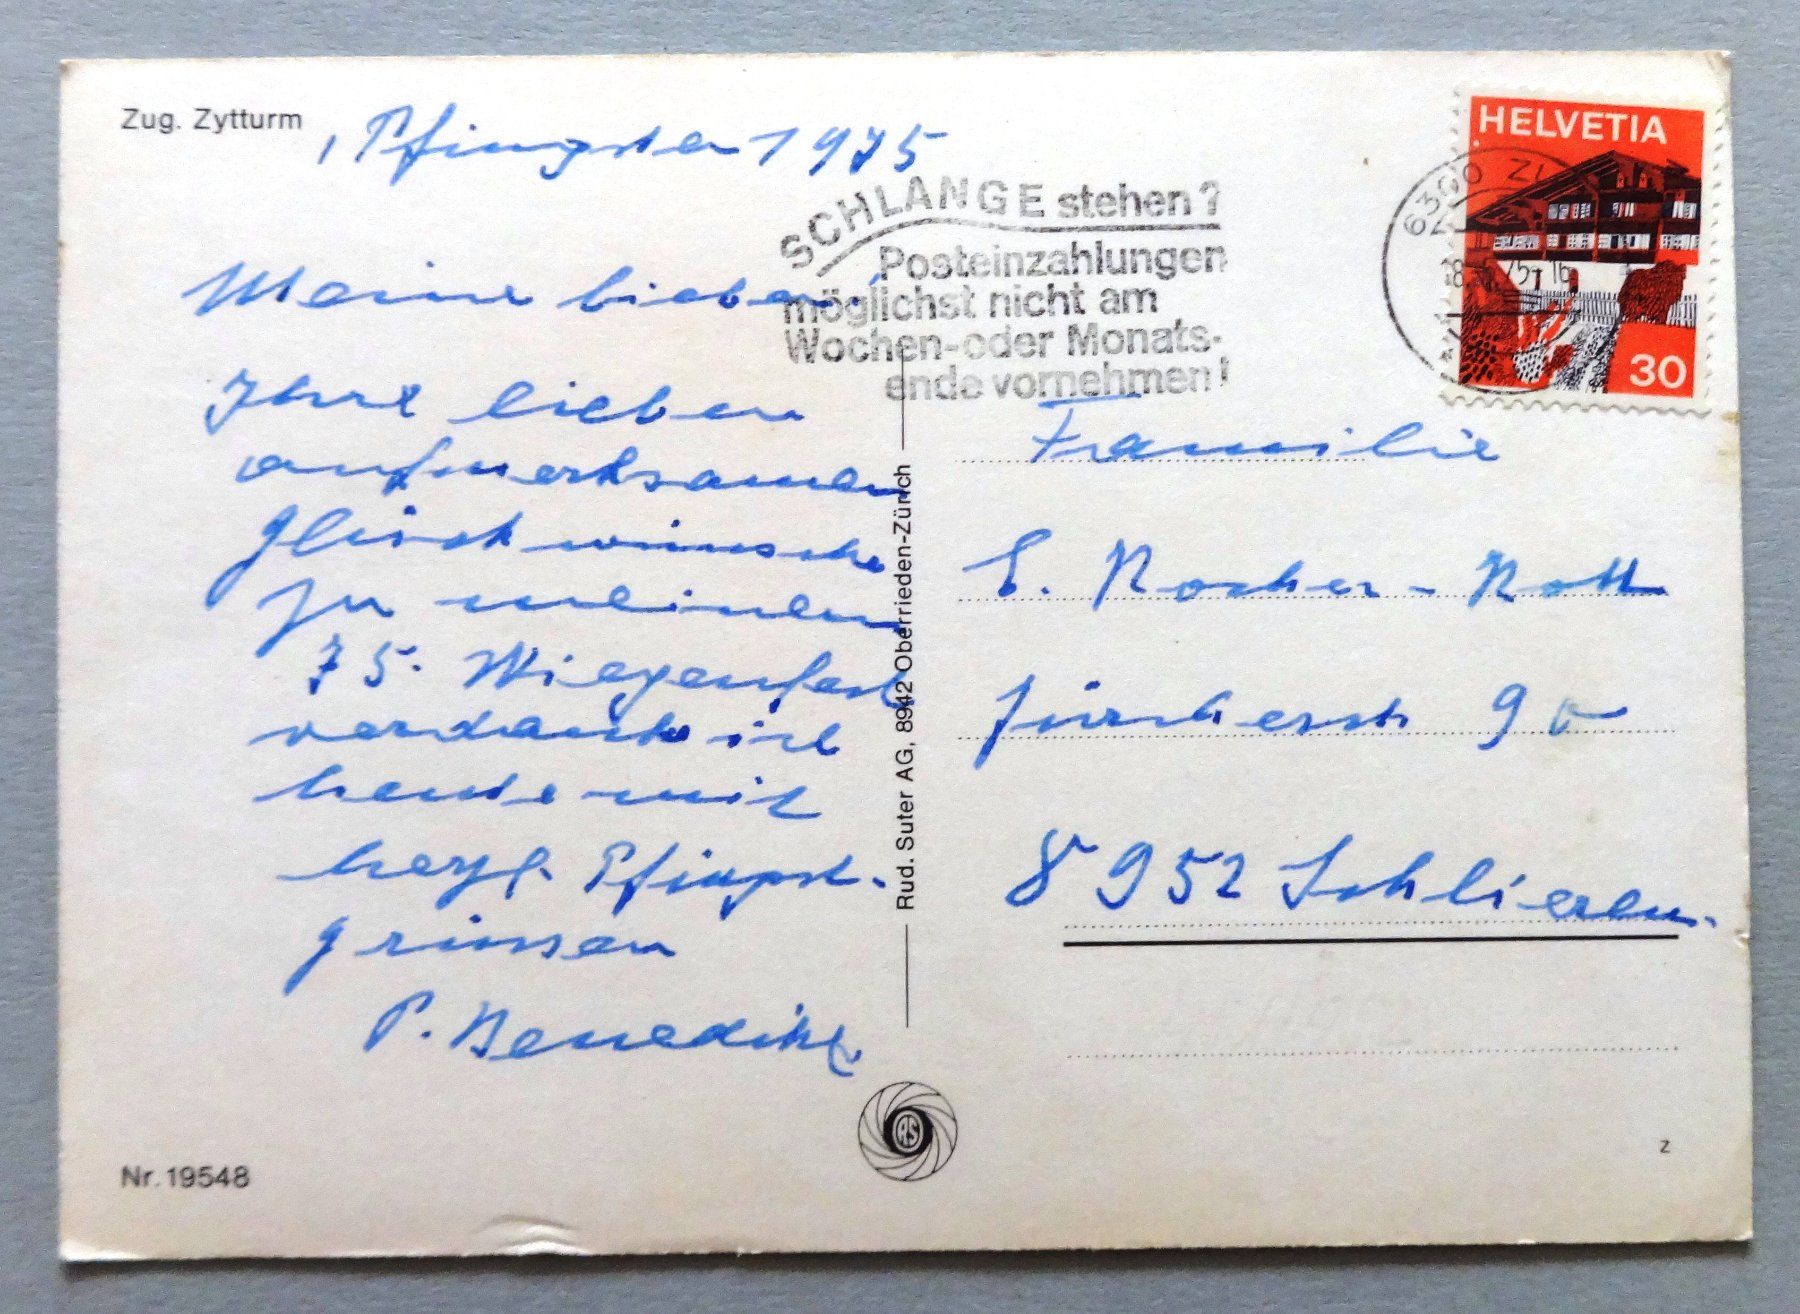 Zug. Zytturm
, Pfingsten 1975
HELVETIA
30
6300 ZU
75-16
SCHLANGE stehen?
Posteinzahlungen
möglichst nicht am
Wochen-oder Monats-
ende vornehmen!
Meine lieben!
Ihre lieben
aufmerksamen
Glückwünsche
zu meinem
75. Wiegenfest
verdanke ich
heute mit
herzl. Pfingst-
grüssen
P. Benedikt
Familie
E. Rocher-Nott
Zürcherstr 90
8952 Schlieren.
Rud. Suter AG, 8942 Oberrieden-Zürich
RS
Nr. 19548
Z